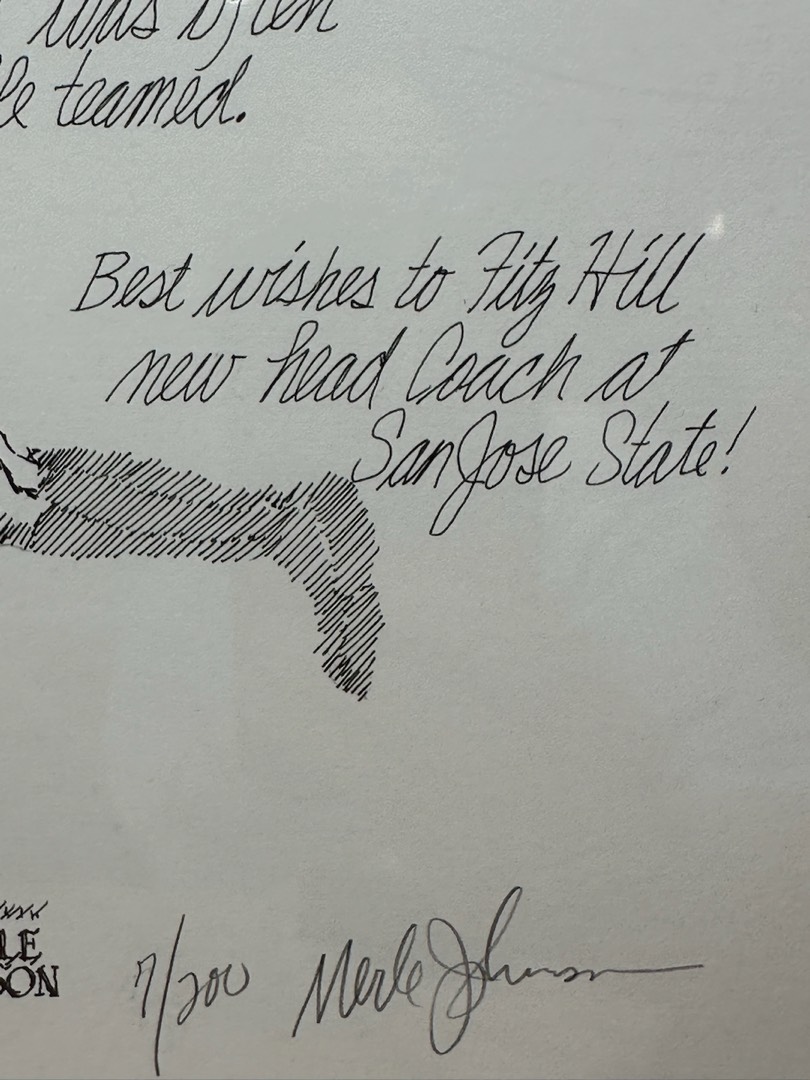 was often
teamed.
Best wishes to Fitz Hill
new head Coach at
San Jose State!
LE
SON
7/200 Merle Johnson